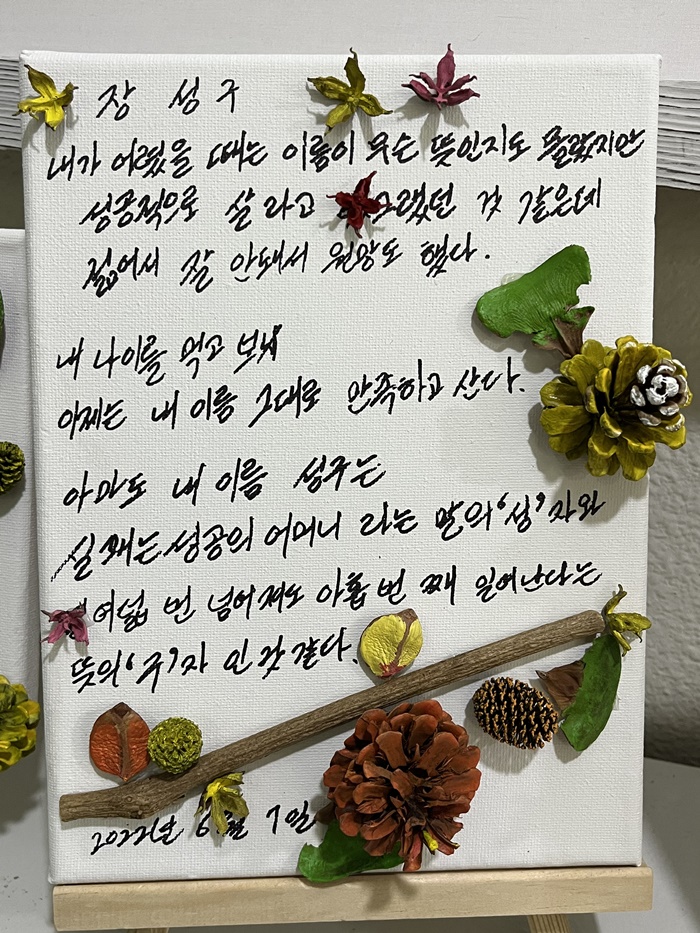 장 성 구
내가 어렸을 때는 이름이 무슨 뜻인지도 몰랐지만
성공적으로 살 라고 그랬던 것 같은데
젊어서 잘 안돼서 원망도 했다.
내 나이를 먹고 보니
이제는 내 이름 그대로 만족하고 산다.
아마도 내 이름 성구는
실패는 성공의 어머니 라는 말의 '성' 자와
여덟 번 넘어져도 아홉 번 째 일어난다는
뜻의 '구' 자 인 것 같다.
2022년 6월 7일